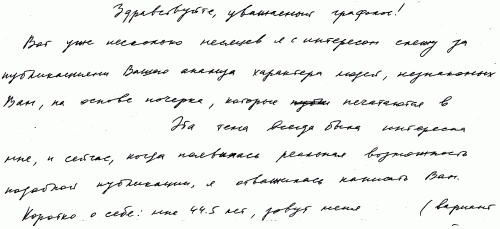 Здравствуйте, уважаемый графолог!
Вот уже несколько месяцев я с интересом слежу за
публикациями Вашего анализа характера людей, незнакомых
Вам, на основе почерка, которые печатаются в
Эта тема всегда была интересна
мне, и сейчас, когда появилась реальная возможность
подобной публикации, я отважилась написать Вам.
Коротко о себе: мне 44.5 лет, зовут меня ( вариант